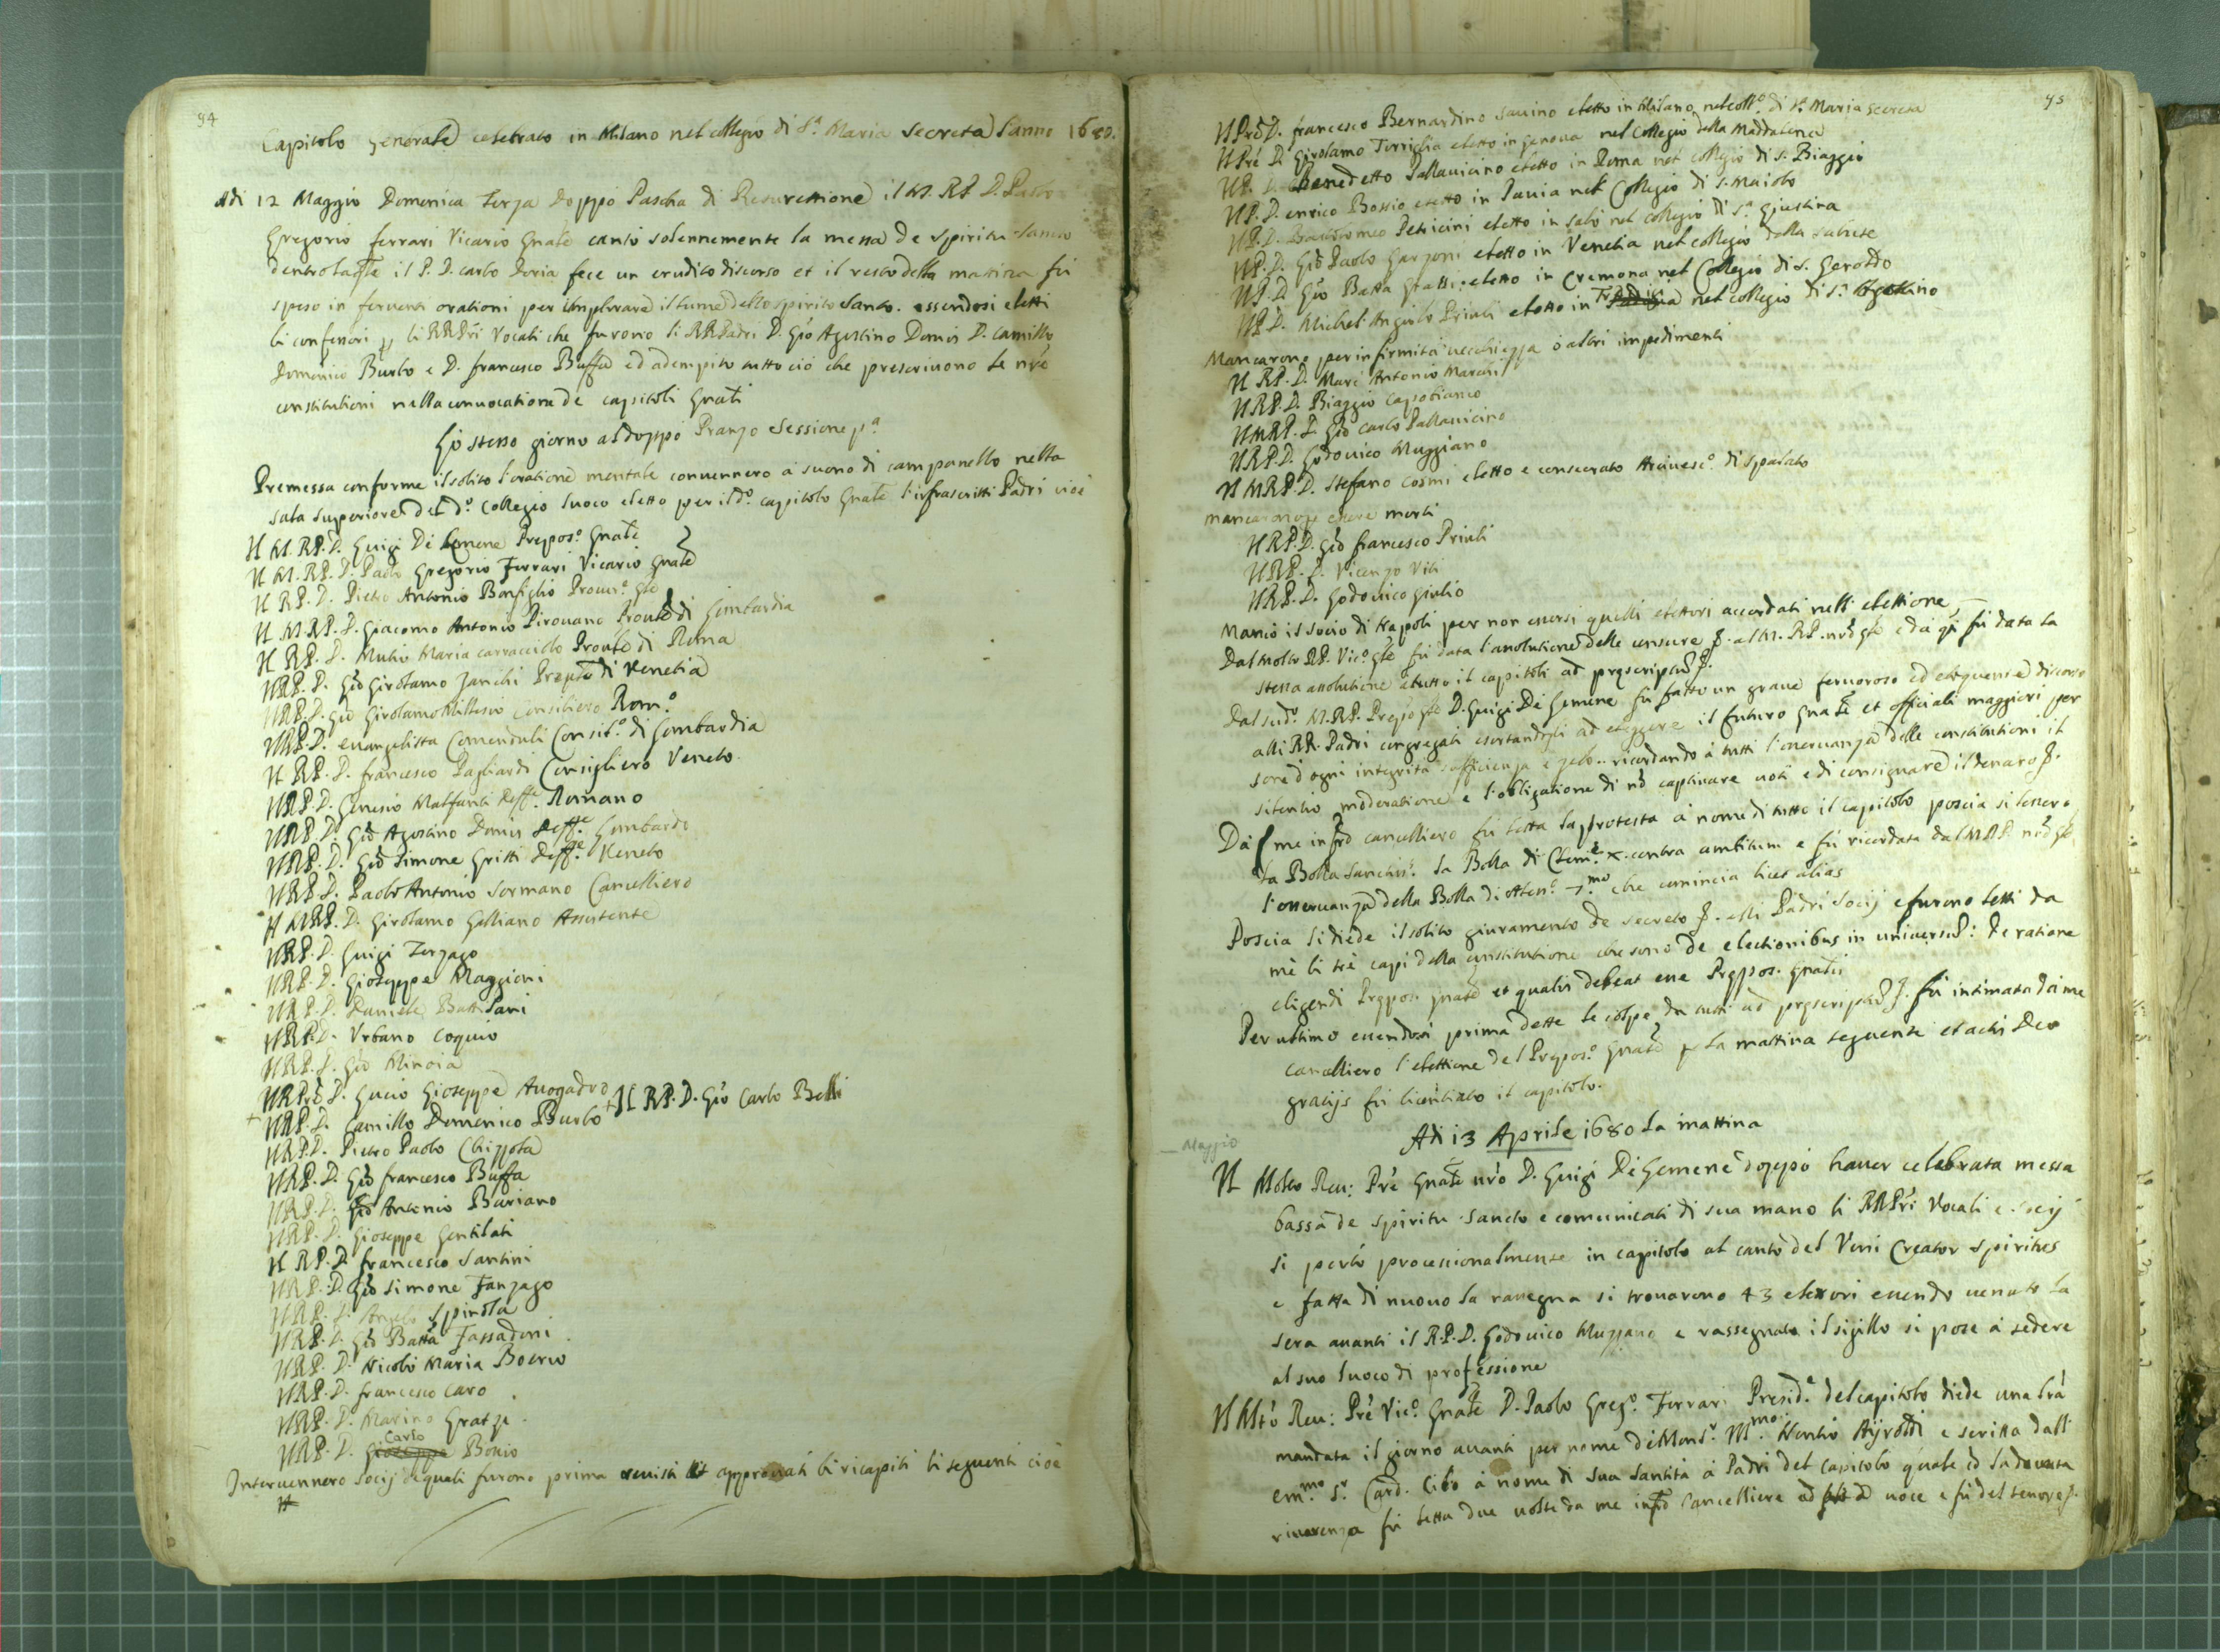 94
Capitolo Generale celebrato in Milano nel collegio di S.a Maria Secreta l'anno 1680.
Adi 12 Maggio Domenica Terza doppo Pascha di Resurettione il M. RP. D. Paolo
Gregorio ferrari Vicario Gnãle cantò solennemente la messa de Spiritu Santo
il P. D. carlo Doria fece un erudito discorso et il resto della mattina fù
speso in feruenti orationi per implorare il lume dello spirito Santo. essendosi eletti
li confessori li RRPri Vocali che furono li RRPadri D. Gio Agostino Domis D. Camillo
Domenico Burlo e D. francesco Buffa ed adempito tutto ciò che prescriuono le nre
constitutioni nella conuocatione de capitoli Gnãli
Lo stesso giorno al doppo Pranzo Sessione p.a
Premessa conforme il solito l'oratione mentale conuennero a suono di campanello nella
sala superiore del d.o Collegio luoco eletto per il d.o capitolo Gnãle l'infrascritti Padri cioè
Il M. RP. D. Luigi Di Lemene Prepos.o Gnãle
Il M. RP. D. Paolo Gregorio Ferrari Vicario Gnãle
Il RP. D. Pietro Antonio Bonfiglio Procur.e Gle
Il M. RP. D. Giacomo Antonio Pirouano Proule di Lombardia
Il RP. D. Mutio Maria carracciolo Prouле di Roma
Il RP. D. Gio Girolamo Zanchi Prouле di Venetia
Il RP. D. Gio Girolamo Consiliero Rom.o
Il RP. D. euangelista Comenduli Consil.o di Lombardia
Il RP. D. francesco Pagliardi Consigliero Veneto.
Il RP. D. Genesio Malfanti deff.e Romano
Il RP. D. Gio Agostino Domis deff.e Lombardo
Il RP. D. Gio Simone Gritti deff.e Veneto
Il RP. D. Paolo Antonio Sormano Cancelliero
Il M. RP. D. Girolamo Galliano Assistente
Il RP. D. Luigi Terzago
Il RP. D. Gioseppe Maggioni
Il RP. D. Daniele
Il RP. D. Vrbano Coquio
Il RP. D. Gio Minoia
Il RPrè D. Lucio Gioseppe Auogadro
Il RP. D. Camillo Domenico Burlo + Il RP. D. Gio Carlo Belli
Il RP. D. Pietro Paolo Chizzola
Il RP. D. Gio francesco Buffa
Il RP. D. Gio Antonio Buriano
Il RP. D. Gioseppe Gentilati
Il RP. D. francesco Santini
Il RP. D. Gio Simone Fanzago
Il RP. D. Angelo Spinola
Il RP. D. Gio Batta Fassadoni
Il RP. D. Nicolò Maria Boerio
Il RP. D. francesco Caro
Il RP. D. Marino
Il RP. D. Carlo Bossio
Interuennero Socij de quali furono prima reuisti et approuati li ricapiti li seguenti cioè
Il
95
Il Prè D. francesco Bernardino Sauino eletto in Milano nel coll.o di S.a Maria Secreta
Il Prè D. Girolamo Torriglia eletto in Genoua nel Collegio della Maddalena
Il P. D. Benedetto Pallauicino eletto in Roma nel collegio di S. Biaggio
Il P. D. enrico Bossio eletto in Pauia nel Collegio di S. Maiolo
Il P. D. Bartolomeo Petricini eletto in Salò nel collegio di S.a Giustina
Il P. D. Gio Paolo Garzoni eletto in Venetia nel collegio della Salute
Il P. D. Gio Batta Grassi eletto in Cremona nel Collegio di S. Geroldo
Il P. D. Michel Angiolo Priuli eletto in nel collegio di S.
Mancarono per infirmità uecchiezza ò altri impedimenti
Il RP. D. Marc Antonio
Il RP. D. Biaggio Capobianco
Il M. RP. D. Gio Carlo Pallauicino
Il RP. D. Lodouico Muggiano
Il M. RP. D. Stefano Cosmi eletto e consecrato Arciuesc.o di Spalato
mancarono p essere morti
Il RP. D. Gio francesco Priuli
Il RP. D. Vicenzo Viti
Il RP. D. Lodouico Giulio
Mancò il socio di Napoli per non essersi quelli elettori accordati nell' elettione,
Dal Molto RP. Vic.o Gle fù data l'assolutione delle censure al M. RP. nro Gle e da q. fù data la
stessa assolutione à tutto il capitoli ad prescriptum
Dal sud.o M. RP. Prepos Gle D. Luigi Di Lemene fù fatto un graue feruoroso ed eloquente discorso
alli RR. Padri congregati esortandogli ad eleggere il futuro Gnãle et officiali maggiori per
sone d'ogni integrità sufficienza e zelo.. ricordando à tutti l'osseruanza delle constitutioni il
silentio moderatione e l'obligatione di nõ captiuare uoti e di consignare il denaro
Dà me infro cancelliero fù letta la protesta à nome di tutto il capitolo poscia si lessero
la Bolla la Bolla di Clem.e X. contra ambitum e fù ricordata dal M. RP. nro Gle
l'osseruanza della Bolla di Aless.o 7.mo che comincia licet alias
Poscia si diede il solito giuramento de secreto alli Padri Socij e furono letti da
me li trè capi della constitutione che sono de electionibus in uniuersum: De ratione
eligendi Prepos. gnalẽ et qualis debeat esse Prepos. Gnalis
Per ultimo essendosi prima dette le colpe da tutti ad prescriptum fù intimata da me
cancelliero l'elettione del Prepos.o Gnãle p la mattina seguente et actis Deo
gratijs fù licentiato il capitolo.
Adi 13 Aprile 1680 la mattina
Maggio
Il Molto Reu: Prè Gnãle nrò D. Luigi Di Lemene doppò hauer celebrata messa
bassa de spiritu Sancto e comunicati di sua mano li RRPri Vocali e socij
si portò processionalmente in capitolo al canto del Veni Creator Spiritus
e fatta di nuouo la rassegna si trouarono 43 elettori essendo uenuto la
sera auanti il R. P. D. Lodouico Muzzano e rassegnato il sigillo si pose à sedere
al suo luoco di professione
Il Mltò Reu: Prè Vic.o Gnãle D. Paolo Greg.o Ferrari Presid.e del capitolo diede una lrã
mandata il giorno auanti per nome di Mons.r e scritta dall
em.mo S.r Card. Cibo à nome di Sua Santità à Padri del Capitolo quale cõ la douuta
riuerenza fù letta due uolte da me infro Cancelliere uoce e fù del tenore